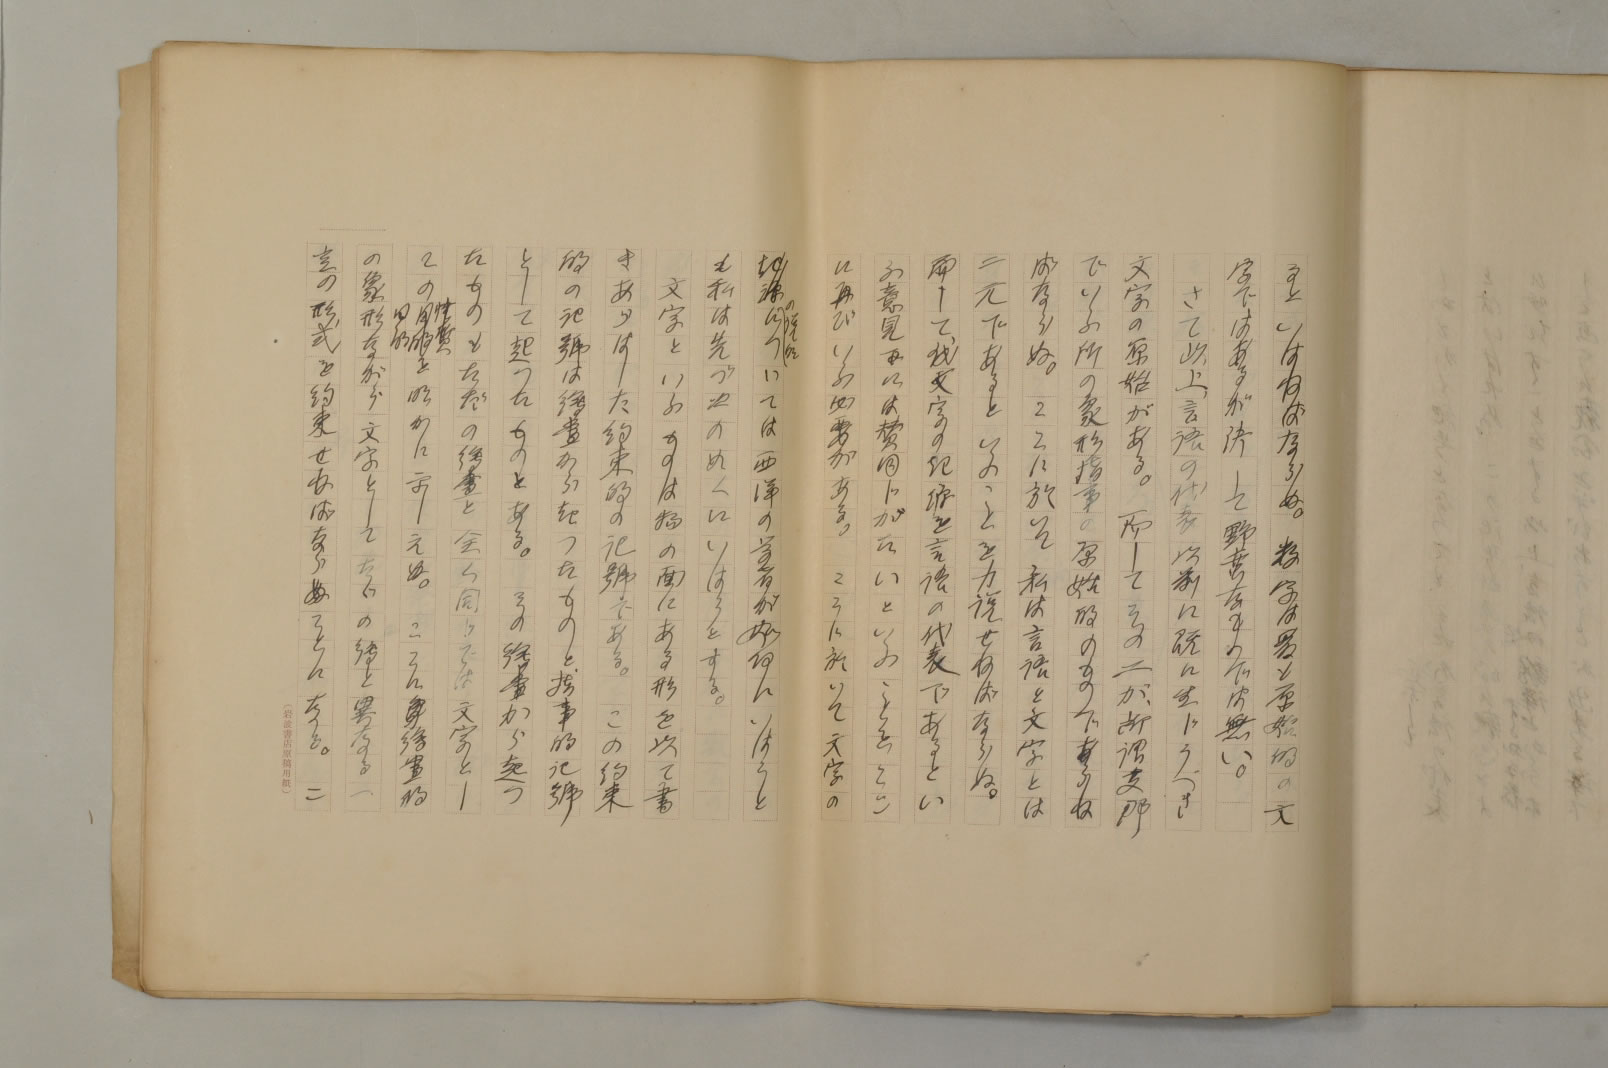 まといはねばならぬ。数字は最も原始的の文
字ではあるが決して野蛮なものでは無い。
さて以上、言語の代表以前に既に生じうべき
文字の原始がある。而してその二が、所謂支那
でいふ所の象形指事の原始的のものであらね
ばならぬ。ここに於いて私は言語と文字とは
二元であるといふことを力説せねばならぬ。
而して、我文字の起源を言語の代表であるとい
ふ意見には賛同しがたいといふことをここ
に再びいふ必要がある。ここに於いて文字の
起源の説明については西洋の学者が如何にいはうと
も私は先づ次のめくにいはうとする。
文字といふものは物の面にある形を以て書
きあらはした約束的の記號である。この約束
的の記號は繪畫から起つたものと指事的記號
として起つたものとある。その繪畫から起つ
たものもただの繪畫と全く同じでは文字とし
ての性質目的を明かに示しえぬ。ここに繪畫的
の象形ながら文字としてただの繪と異なる一
定の形式を約束せねばならぬことになる。二
(岩波書店原稿用紙)